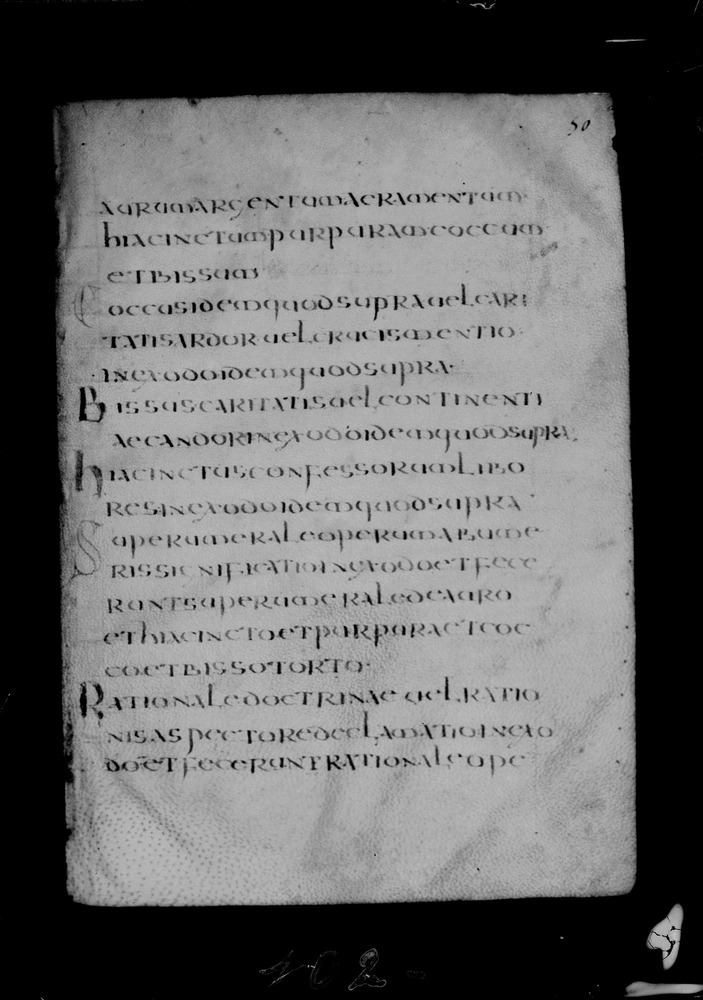 50
aurumargentumaeramentum
hiacinctumpurpuramcoccum
etbissum
Coccusidemquodsuprauelcari
tatisardoruelcrucismentio
inexodoidemquodsupra
Bissuscaritatisuelcontinenti
aecandorinexodoidemquodsupra
hiacinctusconfessorumlibo
resinexodoidemquodsupra
Superumeraleoperumabume
rissignificatioinexodoetfece
runtsuperumeraledeauro
ethiacinctoetpurpuraetcoc
coetbissotorto
Rationaledoctrinaeuelratio
nisaspectoredeclamatioinexo
doetfeceruntrationaleope
102